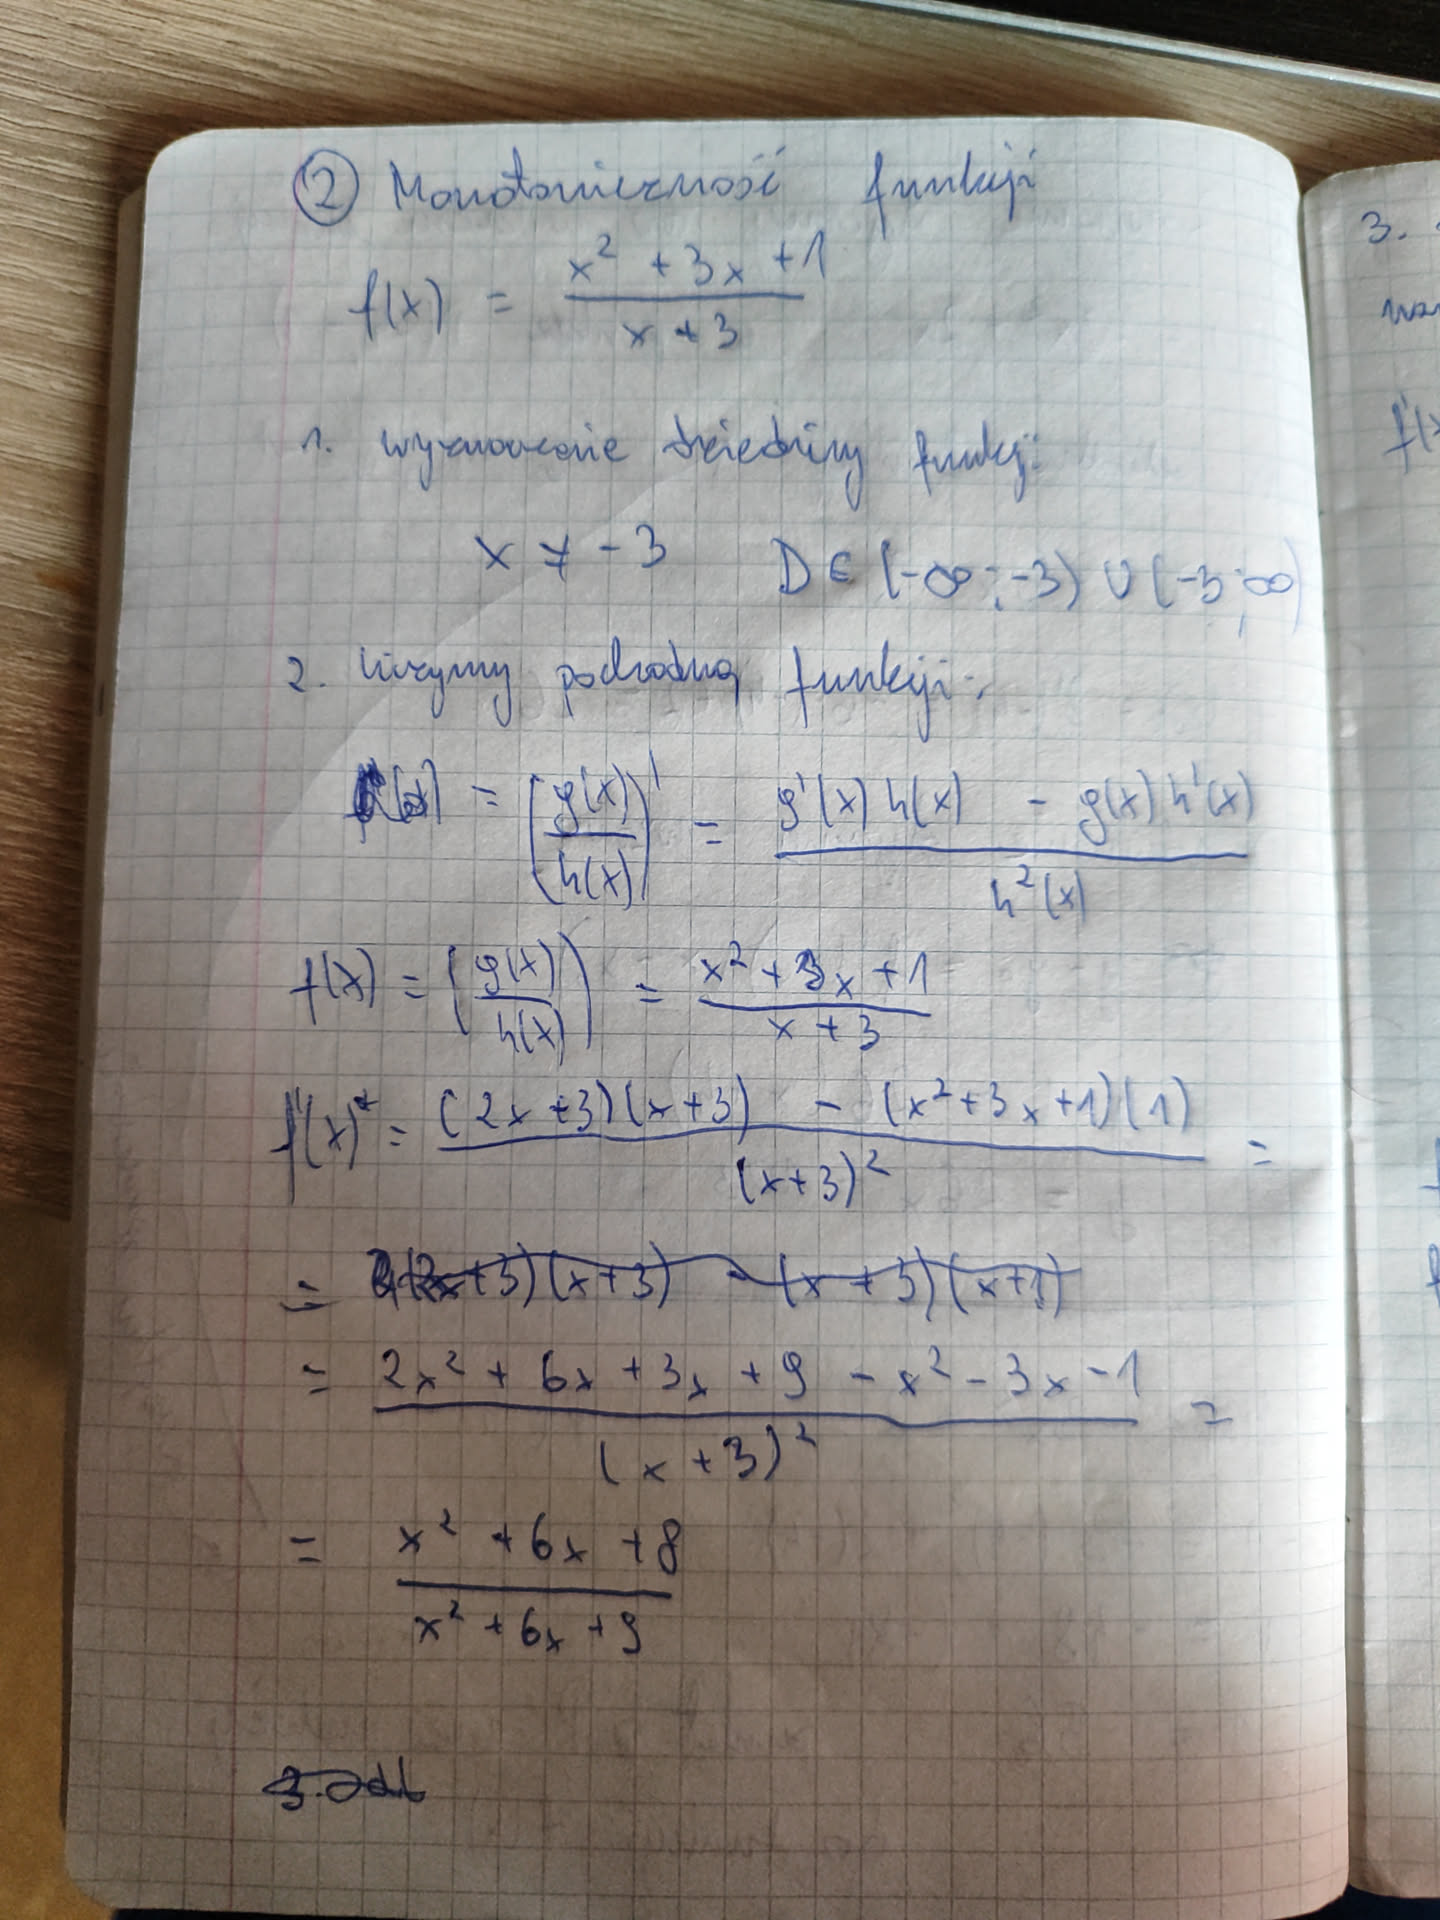 ② Monotoniczność funkcji
f(x) = \frac{x² + 3x + 1}{x + 3}
1. wyznaczenie dziedziny funkcji:
x ≠ -3 D ∈ (-∞; -3) ∪ (-3; ∞)
2. liczymy pochodną funkcji:
= (\frac{g(x)}{h(x)})' = \frac{g'(x) h(x) - g(x) h'(x)}{h²(x)}
f(x) = (\frac{g(x)}{h(x)}) = \frac{x² + 3x + 1}{x + 3}
f'(x) = \frac{(2x+3)(x+3) - (x²+3x+1)(1)}{(x+3)²} =
= (2x+3)(x+3) - (x+3)(x+1)
= \frac{2x² + 6x + 3x + 9 - x² - 3x - 1}{(x+3)²} =
= \frac{x² + 6x + 8}{x² + 6x + 9}
3.
3.
f'(x